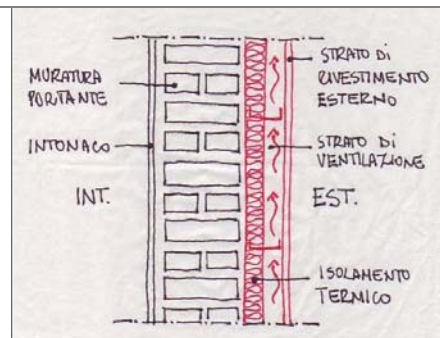 MURATURA
PORTANTE
INTONACO
INT.
STRATO DI
RIVESTIMENTO
ESTERNO
STRATO DI
VENTILAZIONE
EST.
ISOLAMENTO
TERMICO